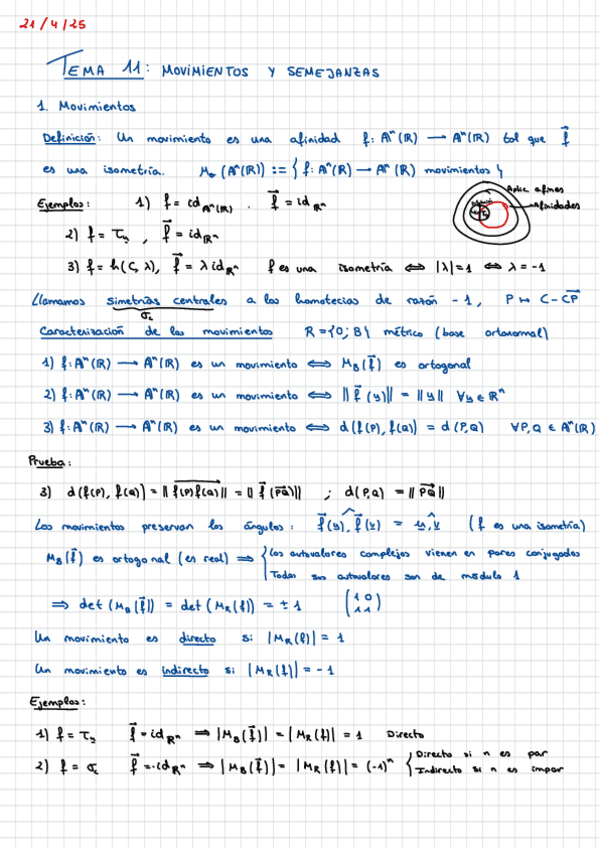 21/4/25
TEMA 11: MOVIMIENTOS Y SEMEJANZAS
1. Movimientos
Definición: Un movimiento es una afinidad f: Aⁿ(ℝ) → Aⁿ(ℝ) tal que f⃗
es una isometría. Mo(Aⁿ(ℝ)) := { f: Aⁿ(ℝ) → Aⁿ(ℝ) movimientos }
Aplic. afines
Afinidades
Ejemplos: 1) f = id_Aⁿ(ℝ) . f⃗ = id_ℝⁿ
2) f = τ_u , f⃗ = id_ℝⁿ
3) f = h(C, λ), f⃗ = λ id_ℝⁿ f es una isometría ⟺ |λ|=1 ⟺ λ=-1
Llamamos simetrías centrales a las homotecias de razón -1, P ↦ C-CP⃗
σ_c
Caracterización de los movimientos R={O; B} métrico (base ortonormal)
1) f: Aⁿ(ℝ) → Aⁿ(ℝ) es un movimiento ⟺ M_B(f⃗) es ortogonal
2) f: Aⁿ(ℝ) → Aⁿ(ℝ) es un movimiento ⟺ ||f⃗(u)|| = ||u|| ∀u ∈ ℝⁿ
3) f: Aⁿ(ℝ) → Aⁿ(ℝ) es un movimiento ⟺ d(f(P), f(Q)) = d(P,Q) ∀P,Q ∈ Aⁿ(ℝ)
Prueba:
3) d(f(P), f(Q)) = ||f(P)f(Q)⃗|| = ||f⃗(PQ⃗)|| ; d(P,Q) = ||PQ⃗||
Los movimientos preservan los ángulos: f⃗(u), f⃗(v) = u,v (f es una isometría)
M_B(f⃗) es ortogonal (es real) ⟹ { Los autovalores complejos vienen en pares conjugados
Todos sus autovalores son de módulo 1
⟹ det(M_B(f⃗)) = det(M_R(f)) = ±1 (1 0
1 1)
Un movimiento es directo si |M_R(f)| = 1
Un movimiento es indirecto si |M_R(f)| = -1
Ejemplos:
1) f = τ_u f⃗ = id_ℝⁿ ⟹ |M_B(f⃗)| = |M_R(f)| = 1 Directo
2) f = σ_c f⃗ = -id_ℝⁿ ⟹ |M_B(f⃗)| = |M_R(f)| = (-1)ⁿ { Directo si n es par
Indirecto si n es impar